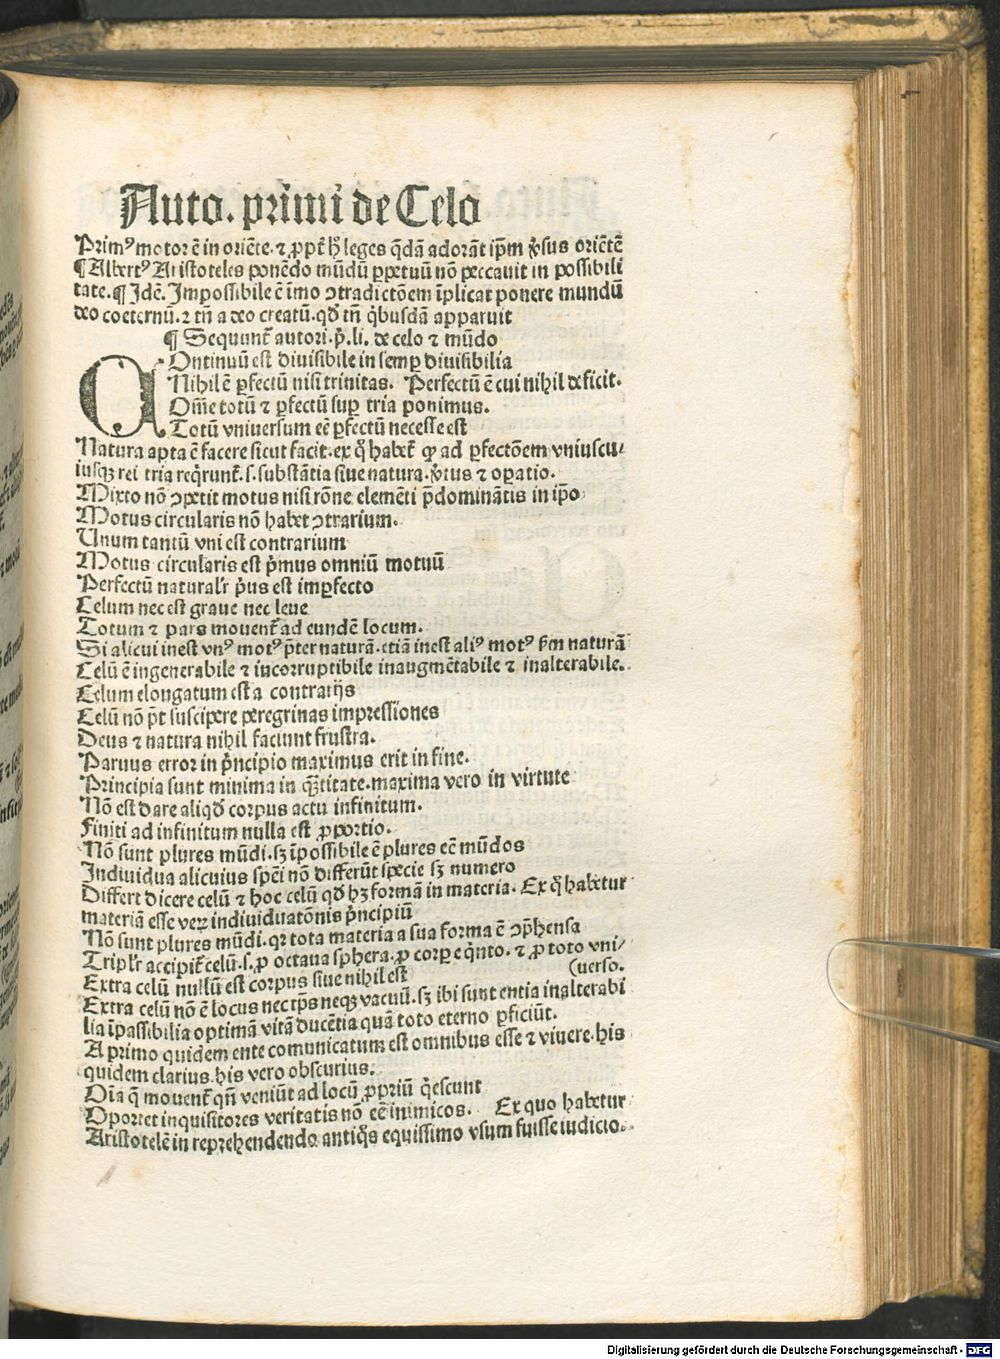 Auto. primi de Celo
Primꝰ motor ē in oriēte. ⁊ ꝓpt̄ hͦ leges q̄dā adorāt ip̄m ꝟsus oriētē
¶ Albertꝰ Aristoteles ponēdo mūdū ꝑpetuū nō peccauit in possibili
tate. ¶ Idē. Impossibile ē īmo ↄtradictōem īplicat ponere mundū
deo coeternū. ⁊ tn̄ a deo creatū. qd̓ tn̄ q̇busdā apparuit
¶ Sequunt̄ autori. p̄. li. de celo ⁊ mūdo
COntinuū est diuisibile in semꝑ diuisibilia
Nihil ē ꝑfectū nisi trinitas. Perfectū ē cui nihil deficit.
Om̄e totū ⁊ ꝑfectū suꝑ tria ponimus.
Totū vniuersum eē ꝑfectū necesse est
Natura apta ē facere sicut facit. ex qͦ habet̄ ꝙ ad ꝑfectōem vniuscu⸗
iusqꝫ rei tria reqͥrunt̄. s. substātia siue natura. ꝟtus ⁊ oꝑatio.
Mixto nō ↄpetit motus nisi rōne elemēti p̄dominātis in ip̄o
Motus circularis nō habet ↄtrarium.
Unum tantū vni est contrarium
Motus circularis est pͥmus omniū motuū
Perfectū naturalr̄ pͥus est imꝑfecto
Celum nec est graue nec leue
Totum ⁊ pars mouent̄ ad eundē locum.
Si alicui inest vnꝰ motꝰ p̄ter naturā. etiā inest aliꝰ motꝰ ẜm naturā
Celū ē ingenerabile ⁊ incorruptibile inaugmētabile ⁊ inalterabile.
Celum elongatum est a contrarijs
Celū nō pōt suscipere peregrinas impressiones
Deus ⁊ natura nihil faciunt frustra.
Paruus error in pͥncipio maximus erit in fine.
Principia sunt minima in qᷓtitate. maxima vero in virtute
Nō est dare aliqd̓ corpus actu infinitum.
Finiti ad infinitum nulla est ꝓportio.
Nō sunt plures mūdi. sꝫ īpossibile ē plures eē mūdos
Indiuidua alicuius spēi nō differūt specie sꝫ numero
Differt dicere celū ⁊ hoc celū qd̓ hꝫ formā in materia. Ex qͦ habetur
materiā esse veꝝ indiuiduatōnis pͥncipiū
Nō sunt plures mūdi. qꝛ tota materia a sua forma ē ↄp̄hensa
Triplr̄ accipit̄ celū. s. ꝓ octaua sphera. ꝓ corꝑe qͥnto. ⁊ ꝓ toto vni⸗
(uerso.
Extra celū nullū est corpus siue nihil est
Extra celū nō ē locus nec tp̄s neqꝫ vacuū. sꝫ ibi sunt entia inalterabi
lia īpassibilia optimā vitā ducētia quā toto eterno ꝑficiūt.
A primo quidem ente comunicatum est omnibus esse ⁊ viuere. his
quidem clarius. his vero obscurius.
Oīa q̄ mouent̄ qn̄ veniūt ad locū ꝓpriū qͥescunt
Oportet inquisitores veritatis nō eē inimicos. Ex quo habetur
Aristotelē in reprehendendo antiqͦs equissimo vsum fuisse iudicio.
Digitalisierung gefördert durch die Deutsche Forschungsgemeinschaft - DFG